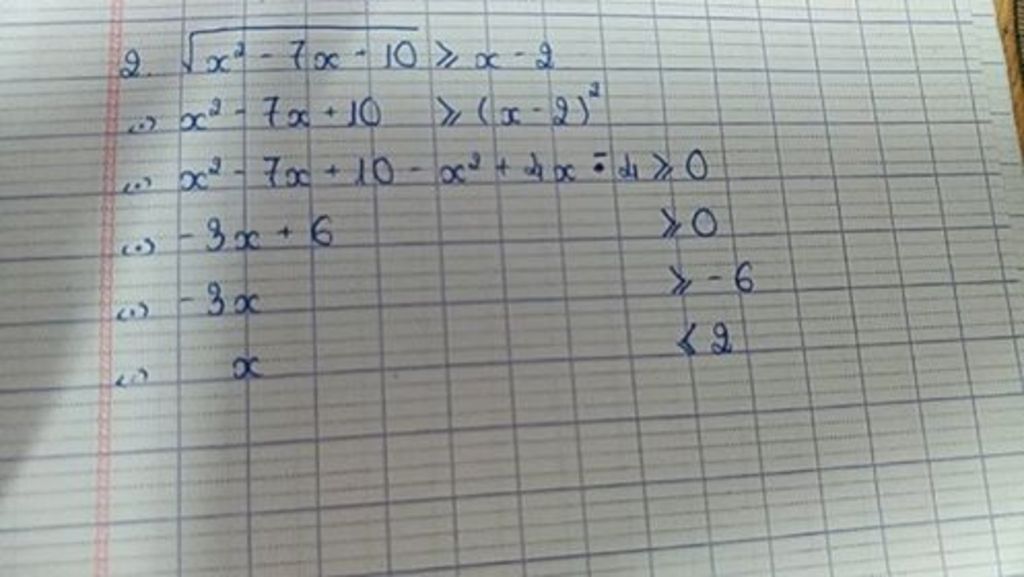 2. √(x² - 7x - 10) ≥ x - 2
(=) x² - 7x + 10 ≥ (x - 2)²
(=) x² - 7x + 10 - x² + 4x - 4 ≥ 0
(=) - 3x + 6 ≥ 0
(=) - 3x ≥ - 6
(=) x ≤ 2